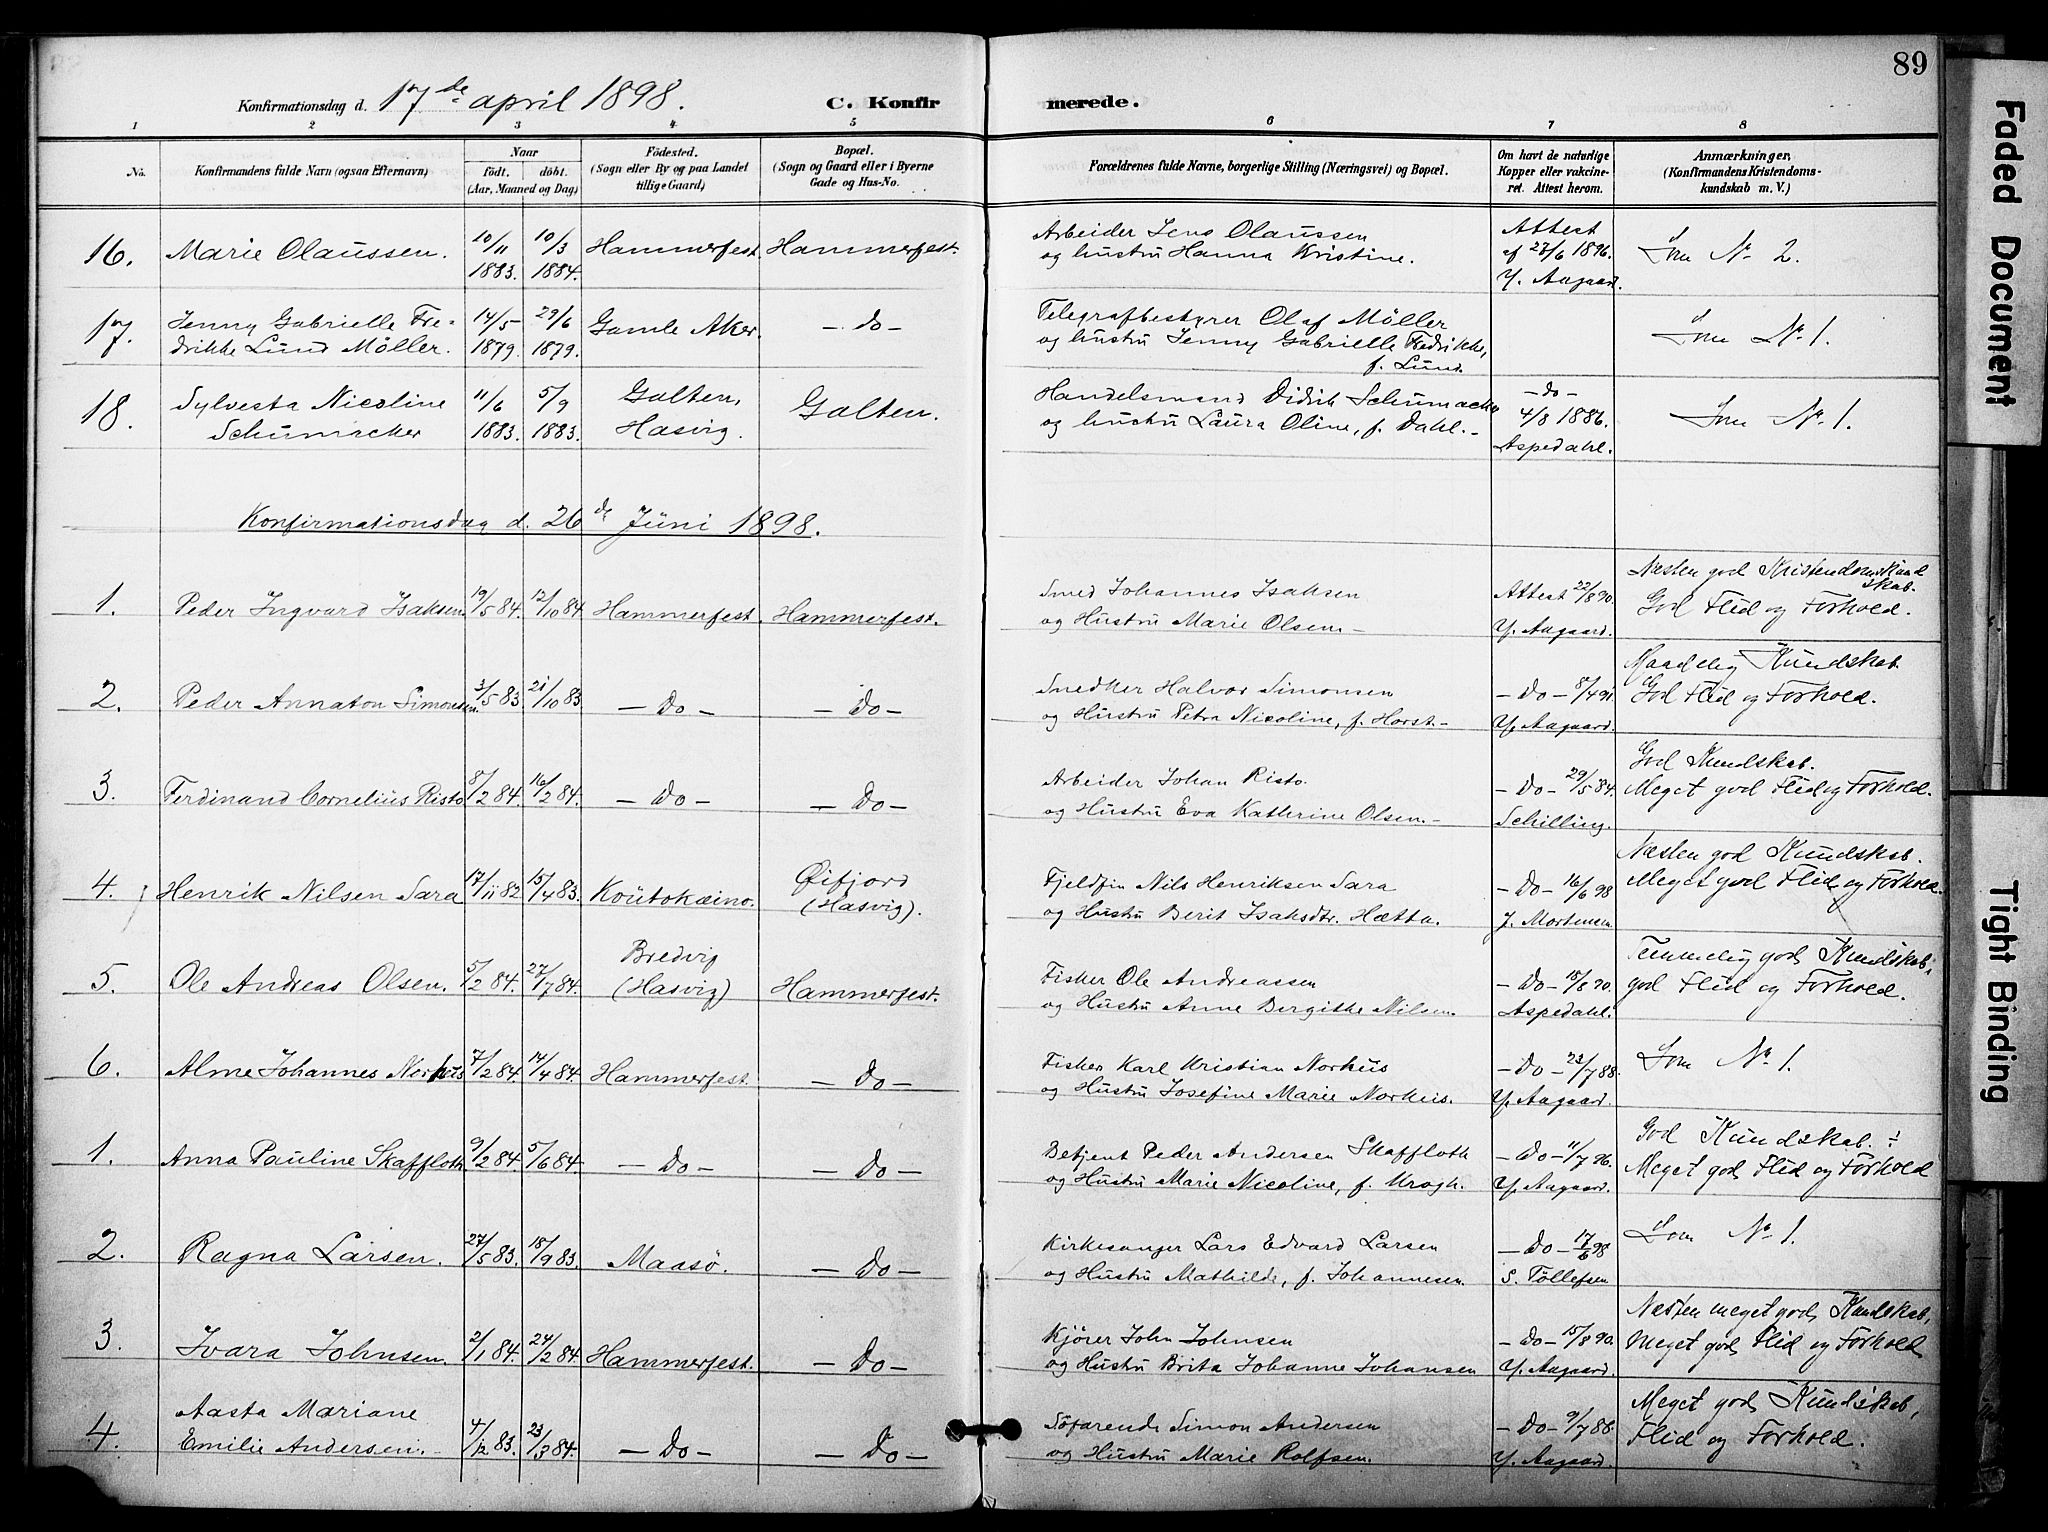 89
Konfirmationsdag d. 17de april 1898. C. Konfirmerede.
1 2 3 4 5 6 7 8
No. Konfirmandens fulde Navn (ogsaa Efternavn) Naar födt. döbt. (Aar, Maaned og Dag) Födested. (Sogn eller By og paa Landet tillige Gaard) Bopæl. (Sogn og Gaard eller i Byerne Gade og Hus-No. Forældrenes fulde Navne, borgerlige Stilling (Næringsvei) og Bopæl. Om havt de naturlige Kopper eller vakcineret. Attest herom. Anmærkninger. (Konfirmandens Kristendomskundskab m. V.)
16. Marie Olaussen. 10/11 1883. 10/3 1884. Hammerfest. Hammerfest. Arbeider Jens Olaussen og hustru Hanna Kristine. Attest af 27/6 1896. Y. Aagaard. Som No 2.
17. Jenny Gabrielle Fredrikke Lund Möller. 14/5 1879. 29/6 1879. Gamle Aker. - do - Telegrafbestyrer Olaf Möller og hustru Jenny Gabrielle Fredrikke, f. Lund. Som No 1.
18. Sylvesta Nicoline Schumacker 11/6 1883. 5/9 1883. Galten, Hasvig. Galten. Handelsmand Didrik Schumacker og hustru Laura Oline, f. Dahl. - - do - 4/8 1886. Aspedahl. Som No 1.
Konfirmationsdag d. 26de Juni 1898.
1. Peder Ingvard Isaksen 19/5 84. 12/10 84. Hammerfest. Hammerfest. Smed Johannes Isaksen og Hustru Marie Olsen. - Attest 22/8 90. Y. Aagaard. Næsten god Kristendomskundskab. God Flid og Forhold.
2. Peder Annaton Simonsen. 3/5 83. 21/10 83. - Do - - Do - Snedker Halvor Simonsen og Hustru Petra Nicoline, f. Horst. - - Do - 8/4 91. Y. Aagaard. Maadelig Kundskab. God Flid og Forhold.
3. Ferdinand Cornelius Risto 8/2 84. 16/2 84. - Do - - Do - Arbeider Johan Risto. og Hustru Eva Kathrine Olsen. - - Do - 29/5 84. Schilling. God Kundskab. Meget god Flid og Forhold.
4. Henrik Nilsen Sara 17/11 82. 15/4 83. Koutokæino. Øifjord (Hasvig). Fjeldfin Nils Henriksen Sara og Hustru Berit Isaksdtr. Hætta. - Do - 16/6 98 J. Mortensen Næsten god Kundskab. Meget god Flid og Forhold.
5. Ole Andreas Olsen. 5/2 84. 27/7 84. Bredvig (Hasvig) Hammerfest. Fisker Ole Andreassen og Hustru Anne Bergitke Nilsen. - Do - 15/8 90. Aspedahl. Temmelig god Kundskab, god Flid og Forhold.
6. Alme Johannes Norhus 7/2 84. 14/4 84. Hammerfest. - Do - Fisker Karl Kristian Norhus og Hustru Josefine Marie Norhus. - Do - 23/7 88. Y. Aagaard. Som No 1.
1. Anna Pauline Skaffloth 9/2 84. 5/6 84. - Do - - Do - Betjent Peder Andersen Skaffloth og Hustru Marie Nicoline, f. Krogh. - Do - 11/7 96. Y. Aagaard. God Kundskab. ÷ Meget god Flid og Forhold
2. Ragna Larsen. 27/5 83. 18/9 83. Maasö. - Do - Kirkesanger Lars Edvard Larsen og Hustru Mathilde, f. Johannesen - Do - 17/6 98 S. Tollefsen Som No 1.
3. Ivara Johnsen. 2/1 84. 24/2 84. Hammerfest. - Do - Kjörer John Johnsen og Hustru Brita Johanne Johansen - Do - 15/8 90. Y. Aagaard. Næsten meget god Kundskab, Meget god Flid og Forhold
4. Aasta Mariane Emilie Andersen. - 4/12 83. 23/3 84. - Do - - Do - Söfarende Simon Andersen og Hustru Marie Rolfsen. - Do - 9/7 88. Y. Aagaard. Meget god Kundskab, Flid og Forhold.
Faded Document
Tight Binding